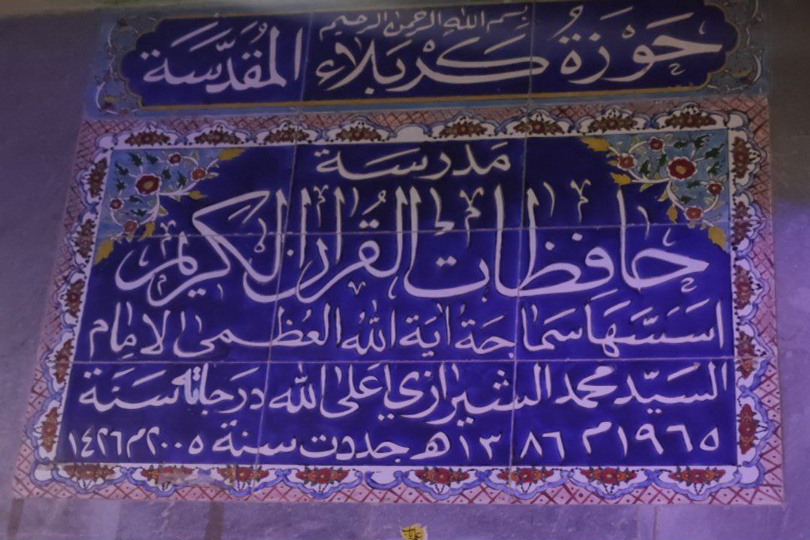 بسم الله الرحمن الرحيم
حَوْزَةُ كَرْبَلاء المُقَدَّسَة
مَدرسَة
حافظات القُرآن الكريم
اسَسَّهَا سَمَاحَة ايَة اللّٰه العُظمى الامِام
السيّد محمد الشيرازي اَعلى الله درَجاته سَنَة
١٩٦٥م ١٣٨٦هـ جددت سنة ٢٠٠٥م ١٤٢٦